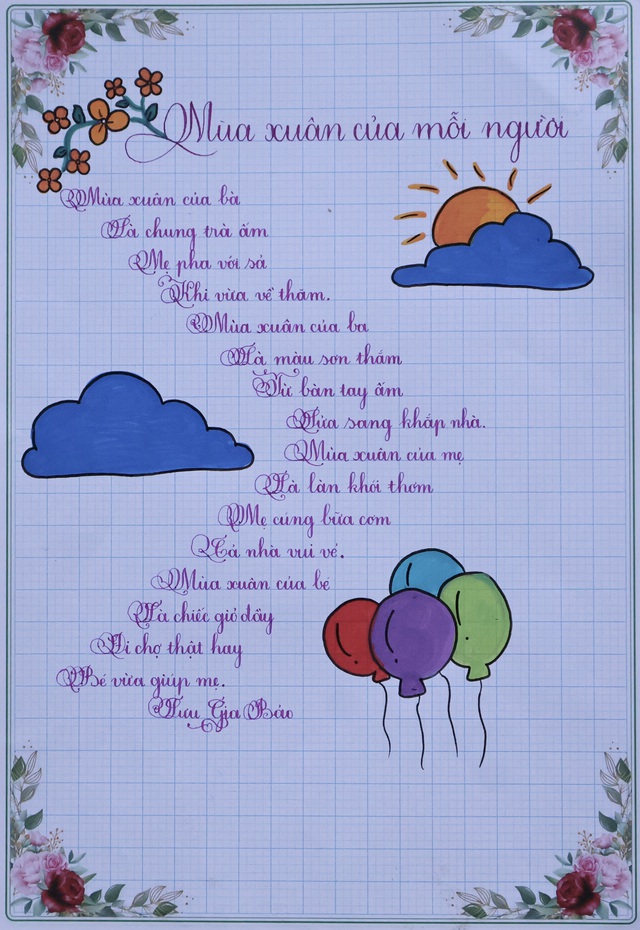 Mùa xuân của mỗi người
Mùa xuân của bà
Là chung trà ấm
Mẹ pha với sả
Khi vừa về thăm.
Mùa xuân của ba
Là màu sơn thắm
Từ bàn tay ấm
Sửa sang khắp nhà.
Mùa xuân của mẹ
Là làn khói thơm
Mẹ cúng bữa cơm
Cả nhà vui vẻ.
Mùa xuân của bé
Là chiếc giỏ đầy
Đi chợ thật hay
Bé vừa giúp mẹ.
Lưu Gia Bảo